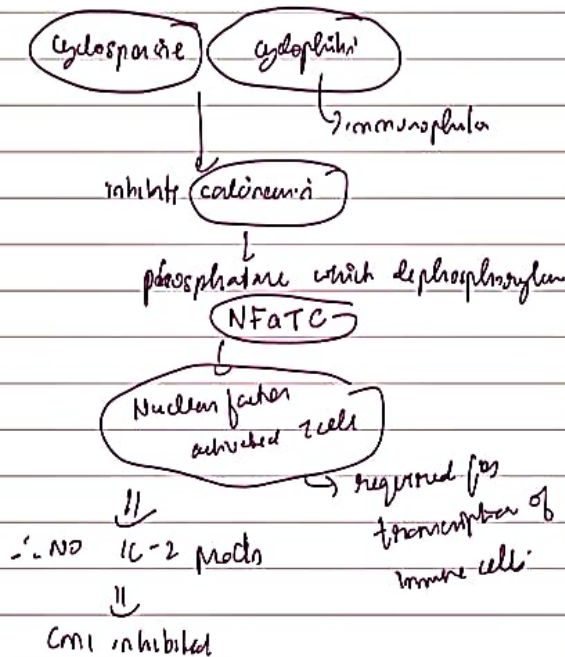 cyclosporine cyclophilin
immunophilin
inhibits calcineurin
phosphatase which dephosphorylates
NFaTC
Nuclear factor
activated T cells
required for
transcription of
immune cells.
∴ NO IL-2 Prodn
CMI inhibited